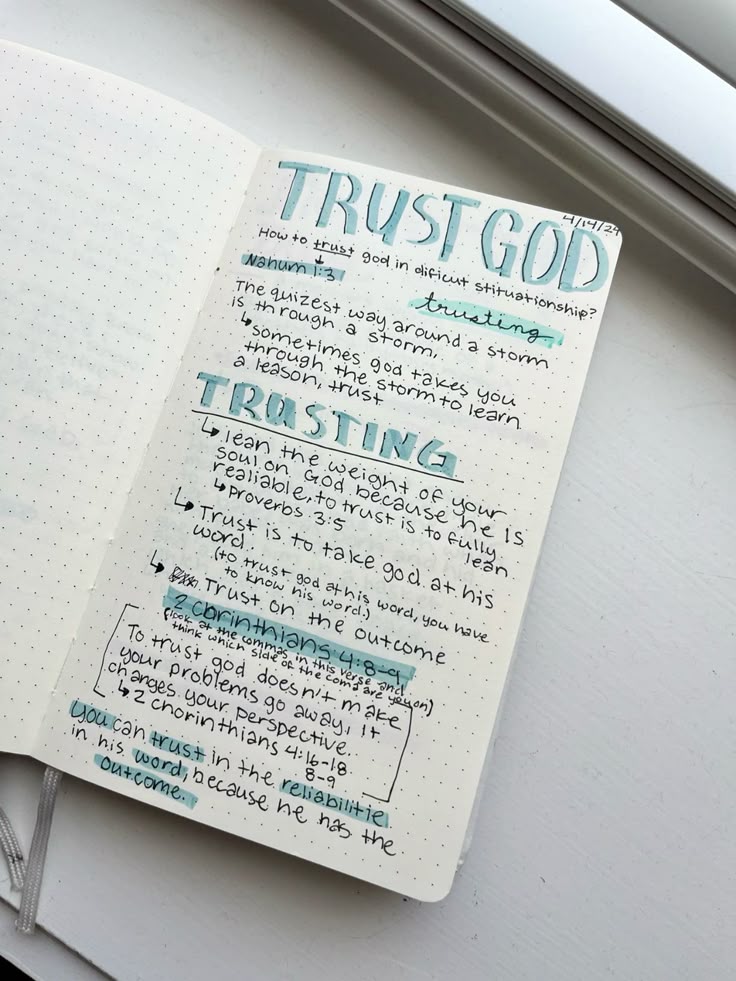 4/14/24
TRUST GOD
How to trust god in dificut stituationship?
Nahum 1:3
trusting
The quizest way around a storm
is through a storm.
↳ sometimes god takes you
through the storm to learn
a leason, trust
TRUSTING
↳ lean the weight of your
soul on God because he is
realiable, to trust is to fully
lean
↳ Proverbs 3:5
↳ Trust is to take god at his
word.
(to trust god at his word, you have
to know his word.)
↳ Trust on the outcome
2 Corinthians 4:8-9
(look at the commas in this verse and
think which side of the coma are you on)
To trust god doesn't make
your problems go away, it
changes your perspective.
↳ 2 chorinthians 4:16-18
8-9
you can trust in the reliabilitie
in his word, because he has the
outcome.